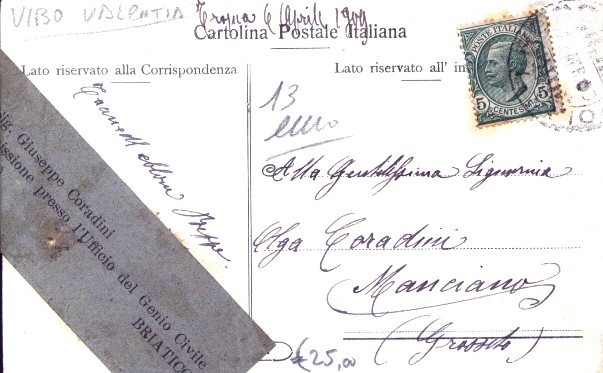 VIBO VALENTIA
Tropea 6 Aprile 1909
Cartolina Postale Italiana
Lato riservato alla Corrispondenza
Lato riservato all' in
POSTE ITALIANE
5 CENTESIMI 5
13
euro
Beppe.
Sig. Giuseppe Coradini
issione presso l'Ufficio del Genio Civile
BRIATICO
Alla Gentilissima Signorina
Olga Coradini
Manciano
(Grosseto)
€ 25,00